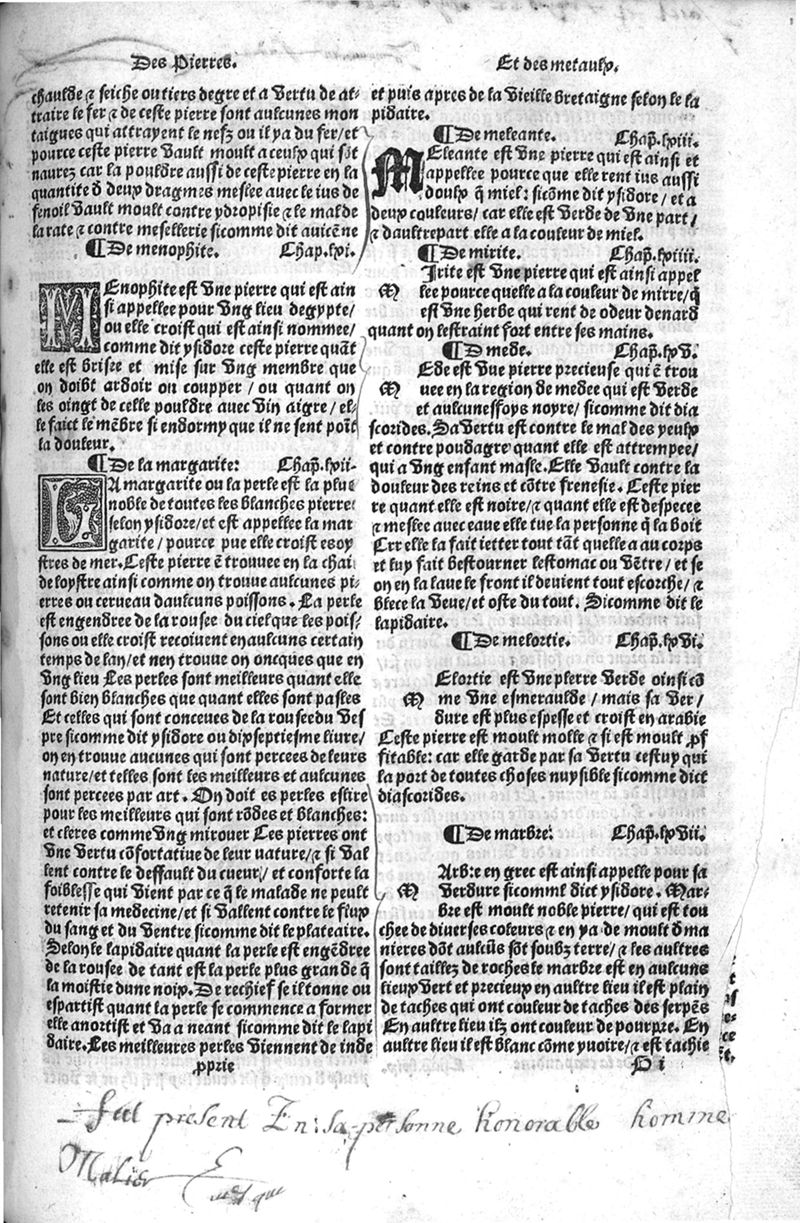 Des Pierres.
chaulde & seiche ou tiers degre et a vertu de at-
traire le fer & de ceste pierre sont aulcunes mon
taignes qui attrayent le nefz ou il ya du fer/et
pource ceste pierre vault moult a ceulx qui sõt
naurez car la pouldre aussi de ceste pierre en la
quantite d̄ deux dragmes meslee avec le ius de
fenoil vault moult contre ydropisie & le mal de
la rate & contre mesellerie sicomme dit auicẽne
¶ De menophite. Chap.lxi.
MEnophite est vne pierre qui est ain
si appellee pour vng lieu degypte/
ou elle croist qui est ainsi nommee/
comme dit ysidore ceste pierre quãt
elle est brisee et mise sur vng membre que
on doibt ardoir ou coupper / ou quant on
les oingt de celle pouldre avec vin aigre/ el-
le faict le mẽbre si endormy que il ne sent poĩt
la douleur.
¶ De la margarite: Chap̃.lxii.
LA margarite ou la perle est la plue
noble de toutes les blanches pierre
selon ysidore/et est appellee la mar
garite/ pource pue elle croist es oy
stres de mer. Ceste pierre ẽ trouuee en la chai
de loystre ainsi comme on trouue aulcunes pi-
erres ou cerueau daulcuns poissons. La perle
est engendree de la rousee du ciel que les pois-
sons ou elle croist recoiuent en aulcuns certain
temps de lan/et ney trouue on oncques que en
vng lieu Les perles sont meilleurs quant elle
sont bien blanches que quant elles sont pasles
Et celles qui sont conceues de la rousee du ves
pre sicomme dit ysidore ou dixseptiesme liure/
on en trouue aucunes qui sont percees de leurs
nature/et telles sont les meilleurs et aulcunes
sont percees par art. On doit es perles eslire
pour les meilleurs qui sont rõdes et blanches:
et cleres comme vng mirouer Ces pierres ont
vne vertu cõfortatiue de leur nature/& si val
lent contre le deffault du cueur/ et conforte la
foiblesse qui vient par ce q̃ le malade ne peult
retenir sa medecine/et si vallent contre le flux
du sang et du ventre sicomme dit le plateaire.
Selon le lapidaire quant la perle est engẽdree
de la rousee de tant est la perle plus grande q̃
la moistie dune noix. De rechief se il tonne ou
espartist quant la perle se commence a former
elle anortist et va a neant sicomme dit le lapi
daire. Les meilleures perles viennent de inde
pprie
Et des metaulx.
et puis apres de la vieille bretaigne selon le la
pidaire.
¶ De meleante. Chap̃.lxiii.
MEleante est vne pierre qui est ainsi et
appellee pource que elle rent ius aussi
doulx q̃ miel: sicõme dit ysidore / et a
deux couleurs/ car elle est verde de vne part/
& daultrepart elle a la couleur de miel.
¶ De mirite. Chap̃.lxiiii.
M Irite est vne pierre qui est ainsi appel
lee pource quelle a la couleur de mirre/q̃
est vne herbe qui rent de odeur de nard
quant on lestraint fort entre ses mains.
¶ De mede. Chap̃.lxv.
M Ede est vne pierre precieuse qui ẽ trou
uee en la region de medee qui est verde
et aulcunesfoys noyre/ sicomme dit dia
scorides. Sa vertu est contre le mal des yeulx
et contre poudagre quant elle est attrempee/
qui a vng enfant masle. Elle vault contre la
douleur des reins et cõtre frenesie. Ceste pier
re quant elle est noire/& quant elle est despecee
& meslee avec eaue elle tue la personne q̃ la boit
Crr elle la fait ietter tout tãt quelle a au corps
et luy fait bestourner lestomac ou vẽtre/ et se
on en la laue le front il deuient tout escorche/ &
blece la veue/et oste du tout. Sicomme dit le
lapidaire.
¶ De melortie. Chap̃.lxvi.
M Elortie est vne pierre verde oinsi cõ
me vne esmeraulde / mais sa ver/
dure est plus espesse et croist en arabie
Ceste pierre est moult molle & si est moult prof
fitable: car elle garde par sa vertu cestuy qui
la port de toutes choses nuysible sicomme dict
diascorides.
¶ De marbre: Chap̃.lxvii.
M Arb:e en grec est ainsi appelle pour sa
verdure sicomme dict ysidore. Mar-
bre est moult noble pierre/ qui est tou
chee de diuerses coleurs & en ya de moult d̄ ma
nieres dõt aulcũs sõt soubz terre/ & les aultres
sont taillez de roches le marbre est en aulcuns
lieux vert et precieux en aultre lieu il est plain
de taches qui ont couleur de taches des serpẽs
En aultre lieu ilz ont couleur de pourpre. En
aultre lieu il est blanc cõme yuoire/ & est tachie
D i
fut present En: sa personne honorable homme